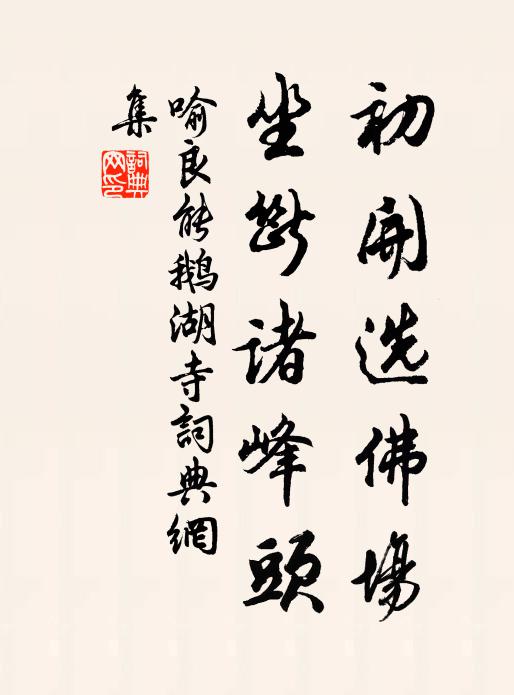 初開选佛場
坐斷诸峰頭
喻良能鵝湖寺詞典網
集
詞典
网印